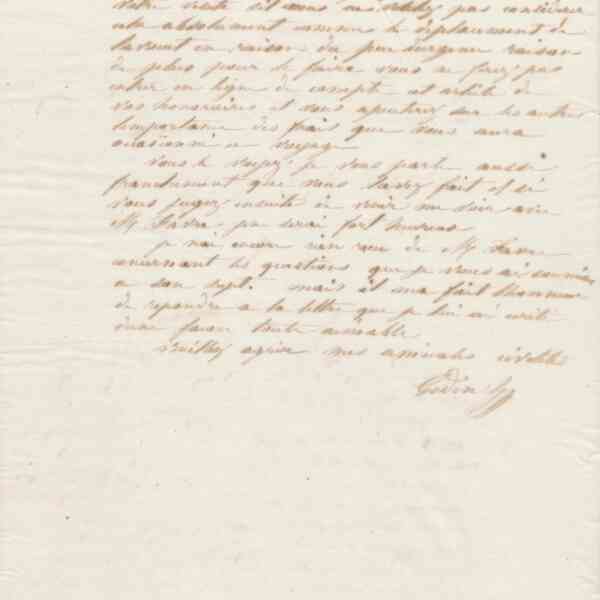 votre visite dit vous n'y pas
cela absolument comme le déplacement de
l'avoué en raison du peu d'urgence raison
de plus pour le faire vous ne ferez pas
entrer en ligne de compte cet article de
vos honoraires et vous ajouterez sur les autres
l'importance des frais que vous aura
occasionné ce voyage
vous le voyez je vous parle aussi
franchement que vous l'avez fait et si
vous jugez ensuite de venir me voir avec
Mr Favre j'en serai fort heureux
je n'ai encore rien reçu de Mr Favre
concernant les questions que je vous ai soumises
a son sujet mais il m'a fait l'honneur
de repondre a la lettre que je lui ai écrite
d'une facon toute aimable
veuillez agréer mes amicales civilités
Godin